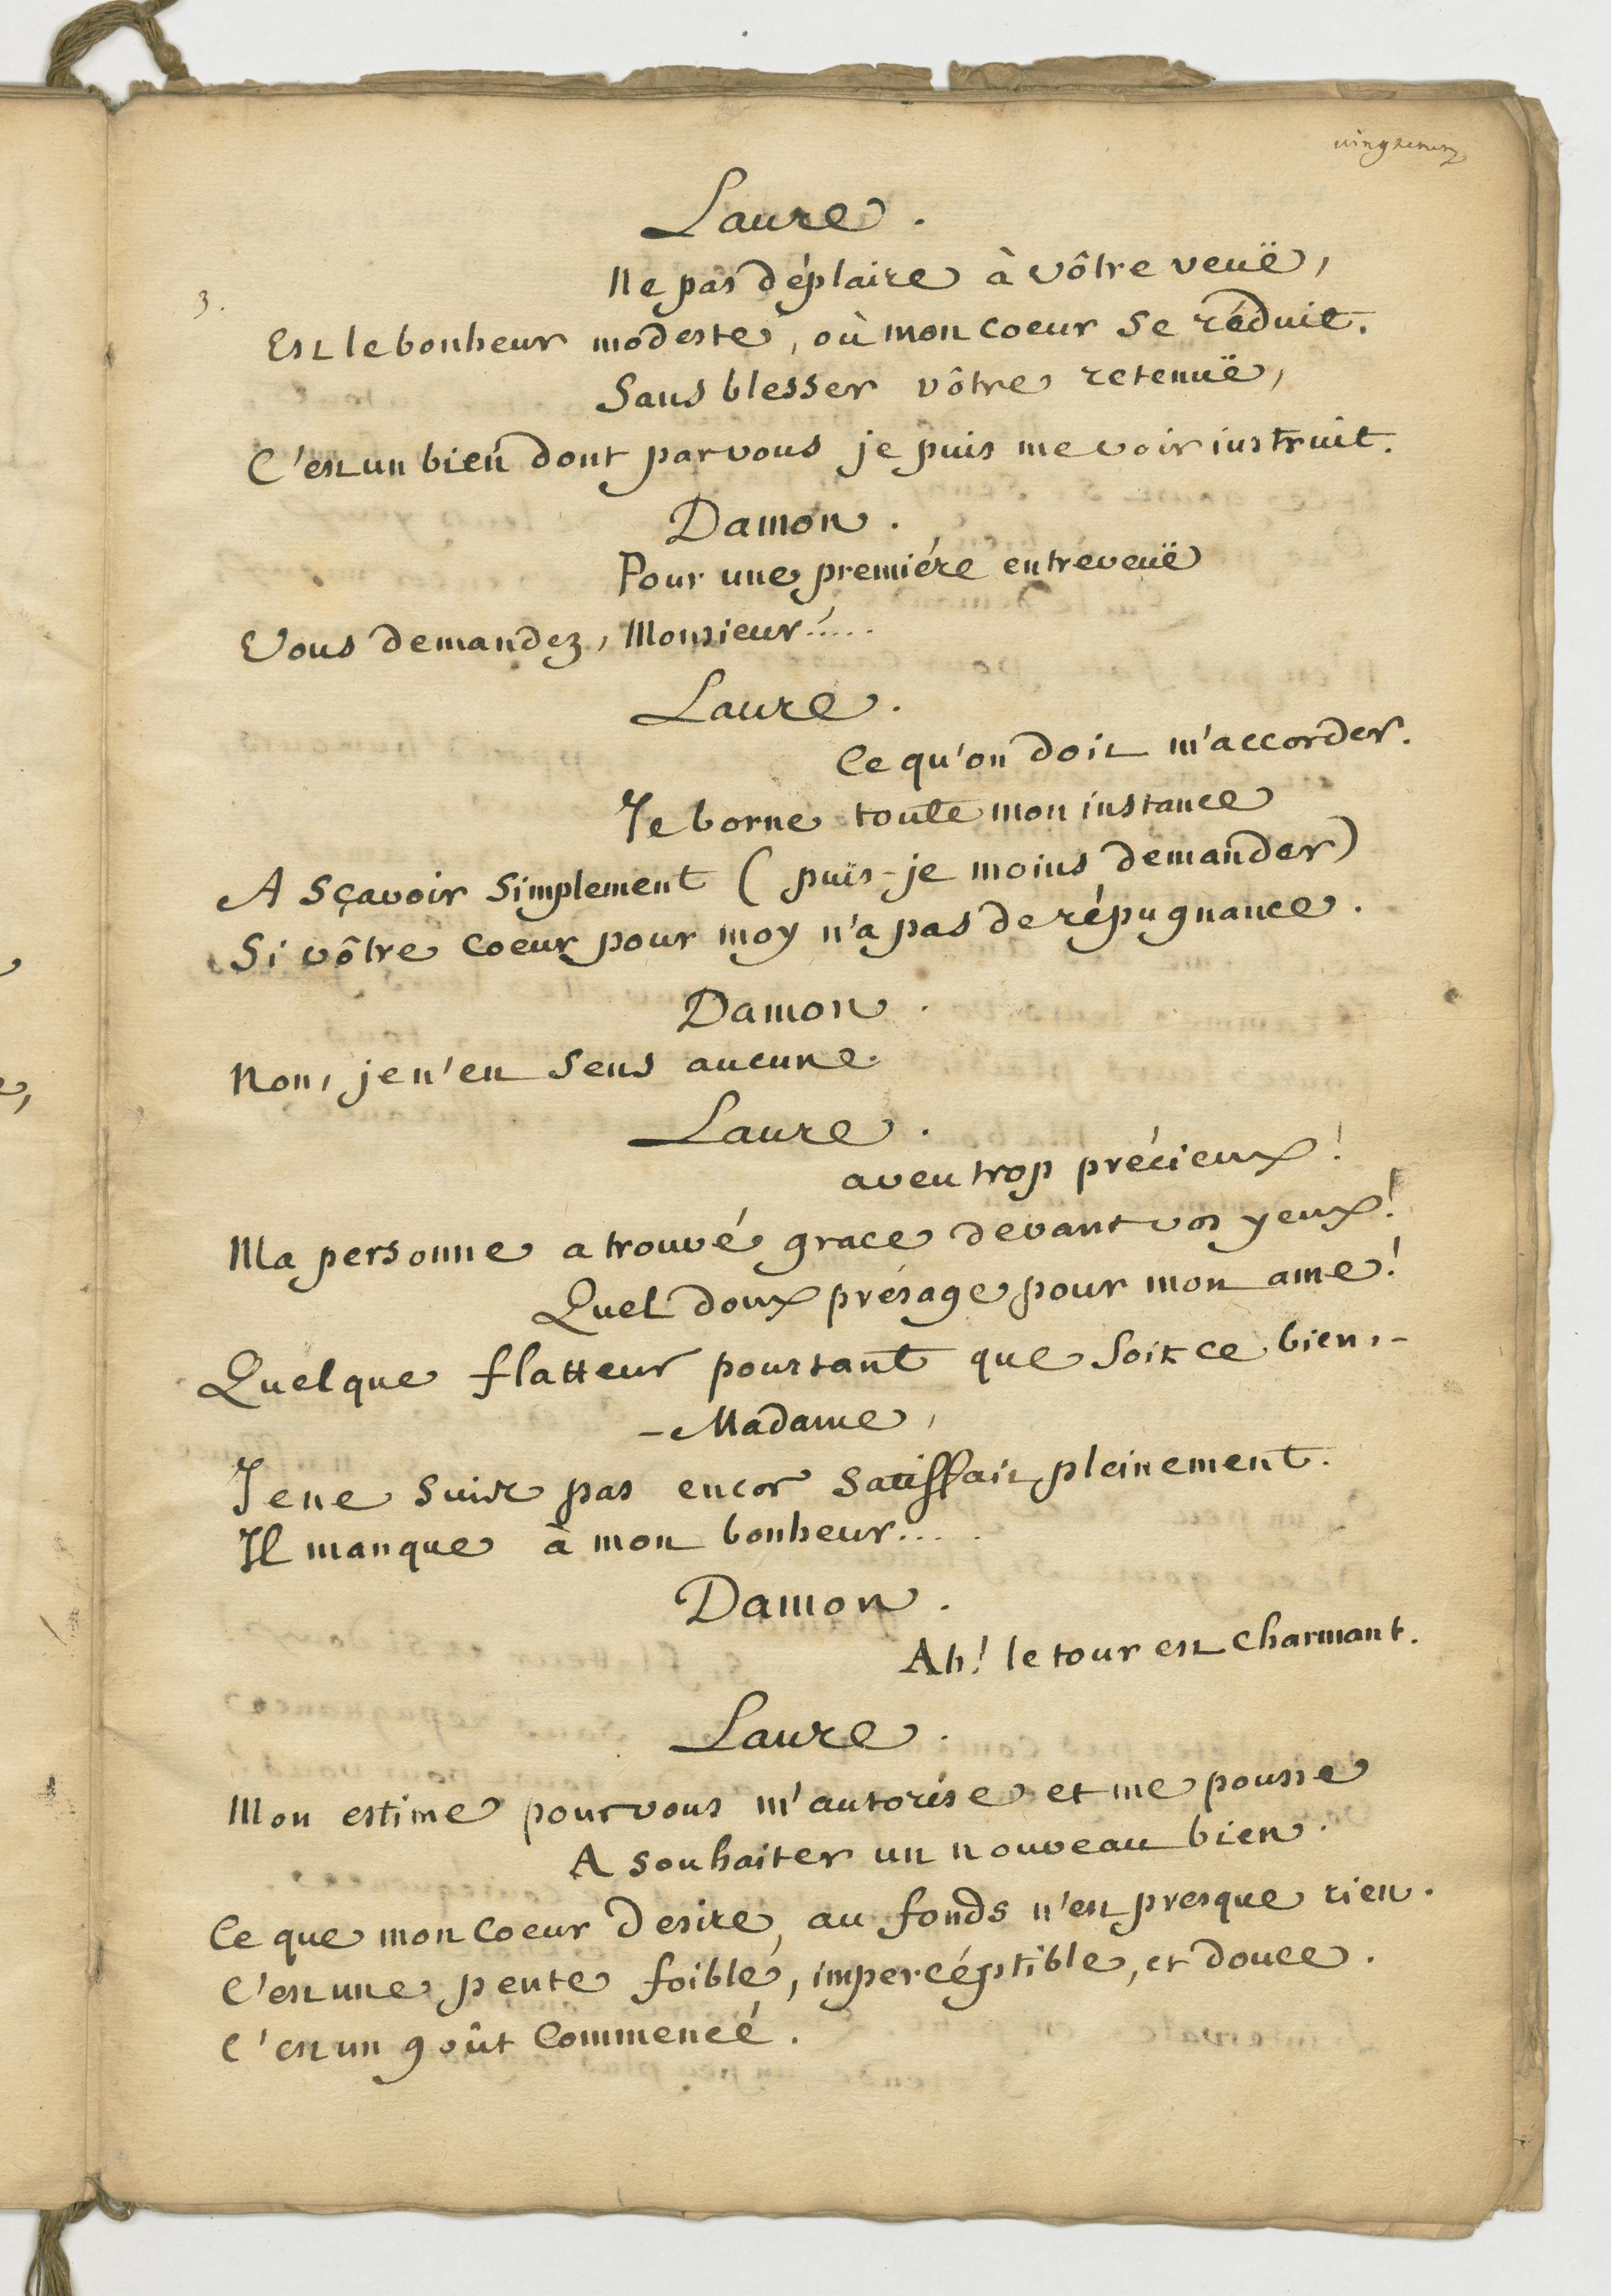 vingt et un
Laure.
Ne pas déplaire à vôtre veuë,
3.
Est le bonheur modeste, où mon coeur se réduit.
Sans blesser vôtre retenuë,
C'est un bien dont par vous je puis me voir instruit.
Damon.
Pour une premiére entreveuë
Vous demandez, Monsieur!....
Laure.
Ce qu'on doit m'accorder.
Je borne toute mon instance
A sçavoir simplement (puis-je moins demander)
Si vôtre coeur pour moy n'a pas de répugnance.
Damon.
Non, je n'en sens aucune.
Laure.
aveu trop précieux!
Ma personne a trouvé grace devant vos yeux!
Quel doux présage pour mon ame!
Quelque flatteur pourtant que soit ce bien, -
- Madame,
Je ne suis pas encor satisfait pleinement.
Il manque à mon bonheur....
Damon.
Ah! le tour est charmant.
Laure.
Mon estime pour vous m'autorise et me pousse
A souhaiter un nouveau bien.
Ce que mon coeur desire, au fonds n'est presque rien.
C'est une pente foible, impercéptible, et douce.
C'est un goût commencé.